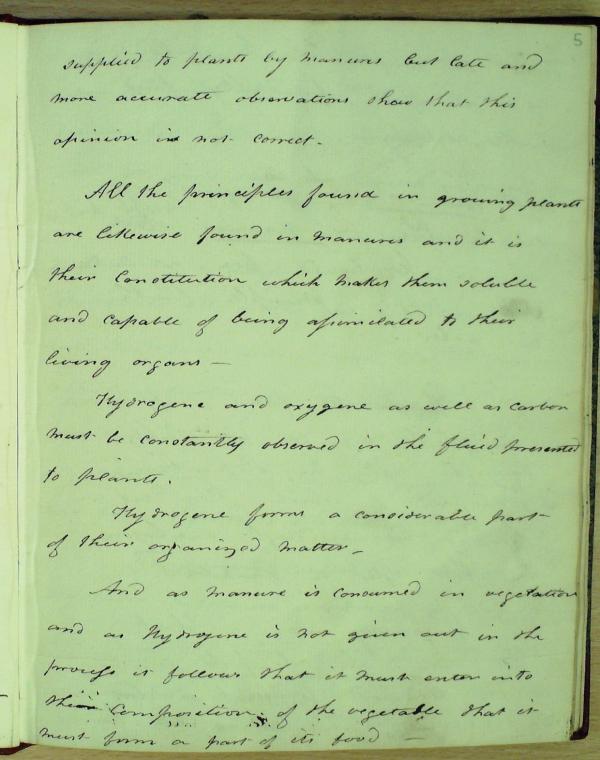 5
supplied to plants by manures but late and
more accurate observations show that this
opinion is not correct.
All the principles found in growing plants
are likewise found in manures and it is
their Constitution which makes them soluble
and capable of being assimilated to their
living organs —
Hydrogene and oxygene as well as carbon
must be constantly observed in the fluid presented
to plants.
Hydrogene forms a considerable part
of their organized matter —
And as manure is consumed in vegetation
and as Hydrogene is not given out in the
process it follows that it must enter into
their Composition of the vegetable that it
must form a part of its food —